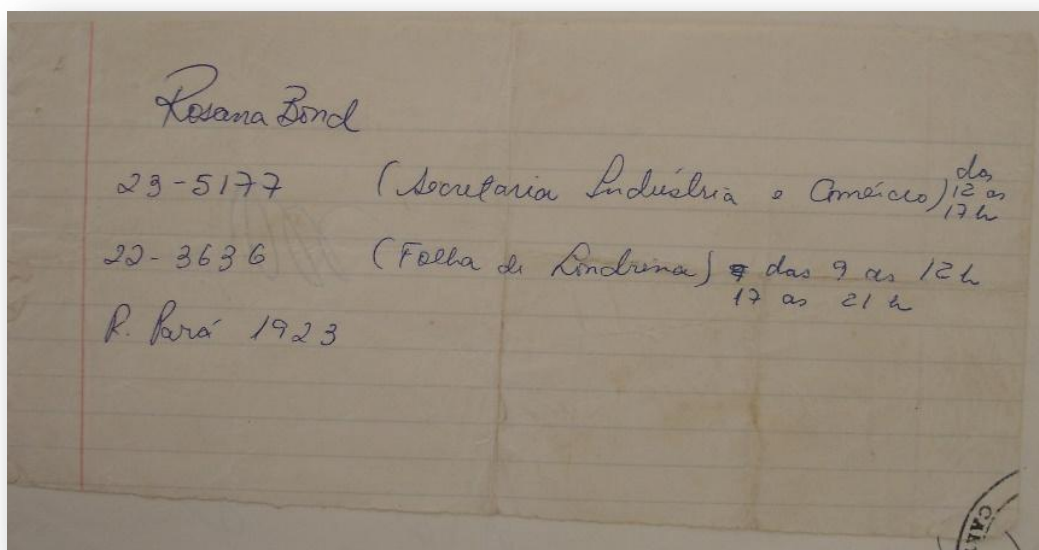 Rosana Bond
23-5177 (Secretaria Indústria e Comércio) das 12 as 17 h
22-3636 (Folha de Londrina) das 9 as 12 h
17 as 21 h
R. Pará 1923